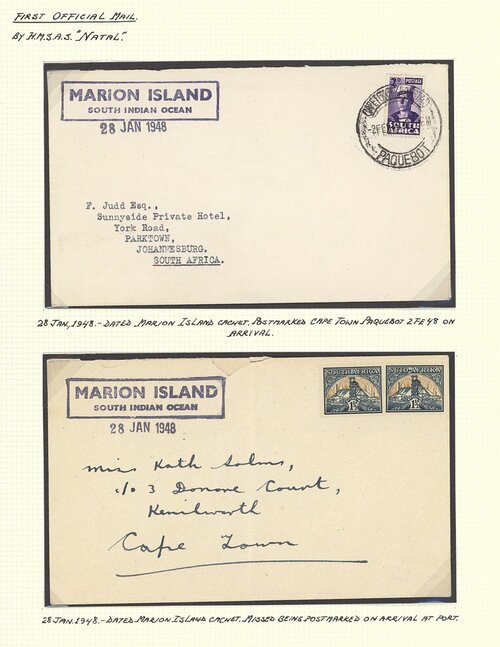 FIRST OFFICIAL MAIL.
BY H.M.S.A.S. "NATAL".
MARION ISLAND
SOUTH INDIAN OCEAN
28 JAN 1948
2D POSTAGE
SOUTH
AFRICA
-2FE
PAQUEBOT
F. Judd Esq.,
Sunnyside Private Hotel,
York Road,
PARKTOWN,
JOHANNESBURG.
SOUTH AFRICA.
28 JAN, 1948.- DATED MARION ISLAND CACHET. POSTMARKED CAPE TOWN PAQUEBOT 2 FE 48 ON
ARRIVAL.
MARION ISLAND
SOUTH INDIAN OCEAN
28 JAN 1948
SOUTH AFRICA
SOUTH AFRICA
Miss Kath Solms,
c/o 3 Donore Court,
Kenilworth
Cape Town
28 JAN. 1948.- DATED MARION ISLAND CACHET. MISSED BEING POSTMARKED ON ARRIVAL AT PORT.